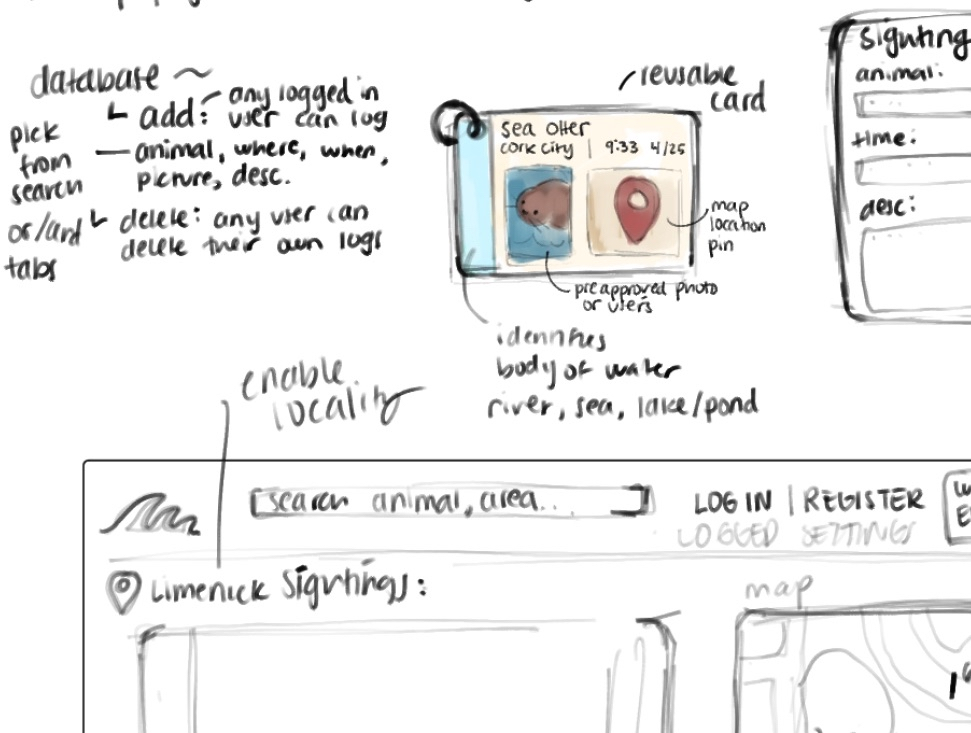 database ~
add: any logged in
user can log
pick
from
search
or/and
tabs
animal, where, when,
picture, desc.
delete: any user can
delete their own logs
reusable
card
sea otter
cork city | 9:33 4/25
map
location
pin
preapproved photo
or users
identifies
body of water
river, sea, lake/pond
Sighting
animal:
time:
desc:
enable
locality
search animal, area...
LOG IN | REGISTER
LOGGED SETTINGS
Limerick Sightings:
map